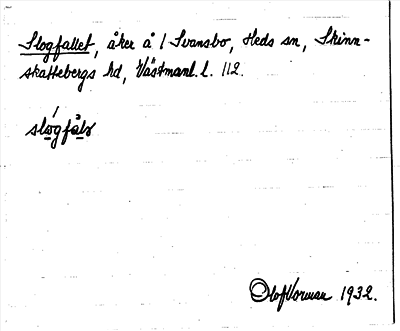 Slogfallet, åker å 1 Svansbo, Heds sn, Skinn-
skattebergs hd, Västmanl. l. 112.
slògfàlə
Olof Vorman 1932.